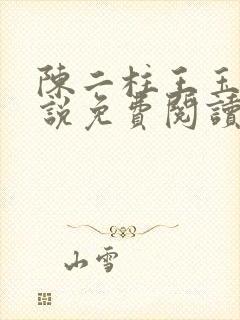 陳二柱王玉
說免費閱讀
山雪